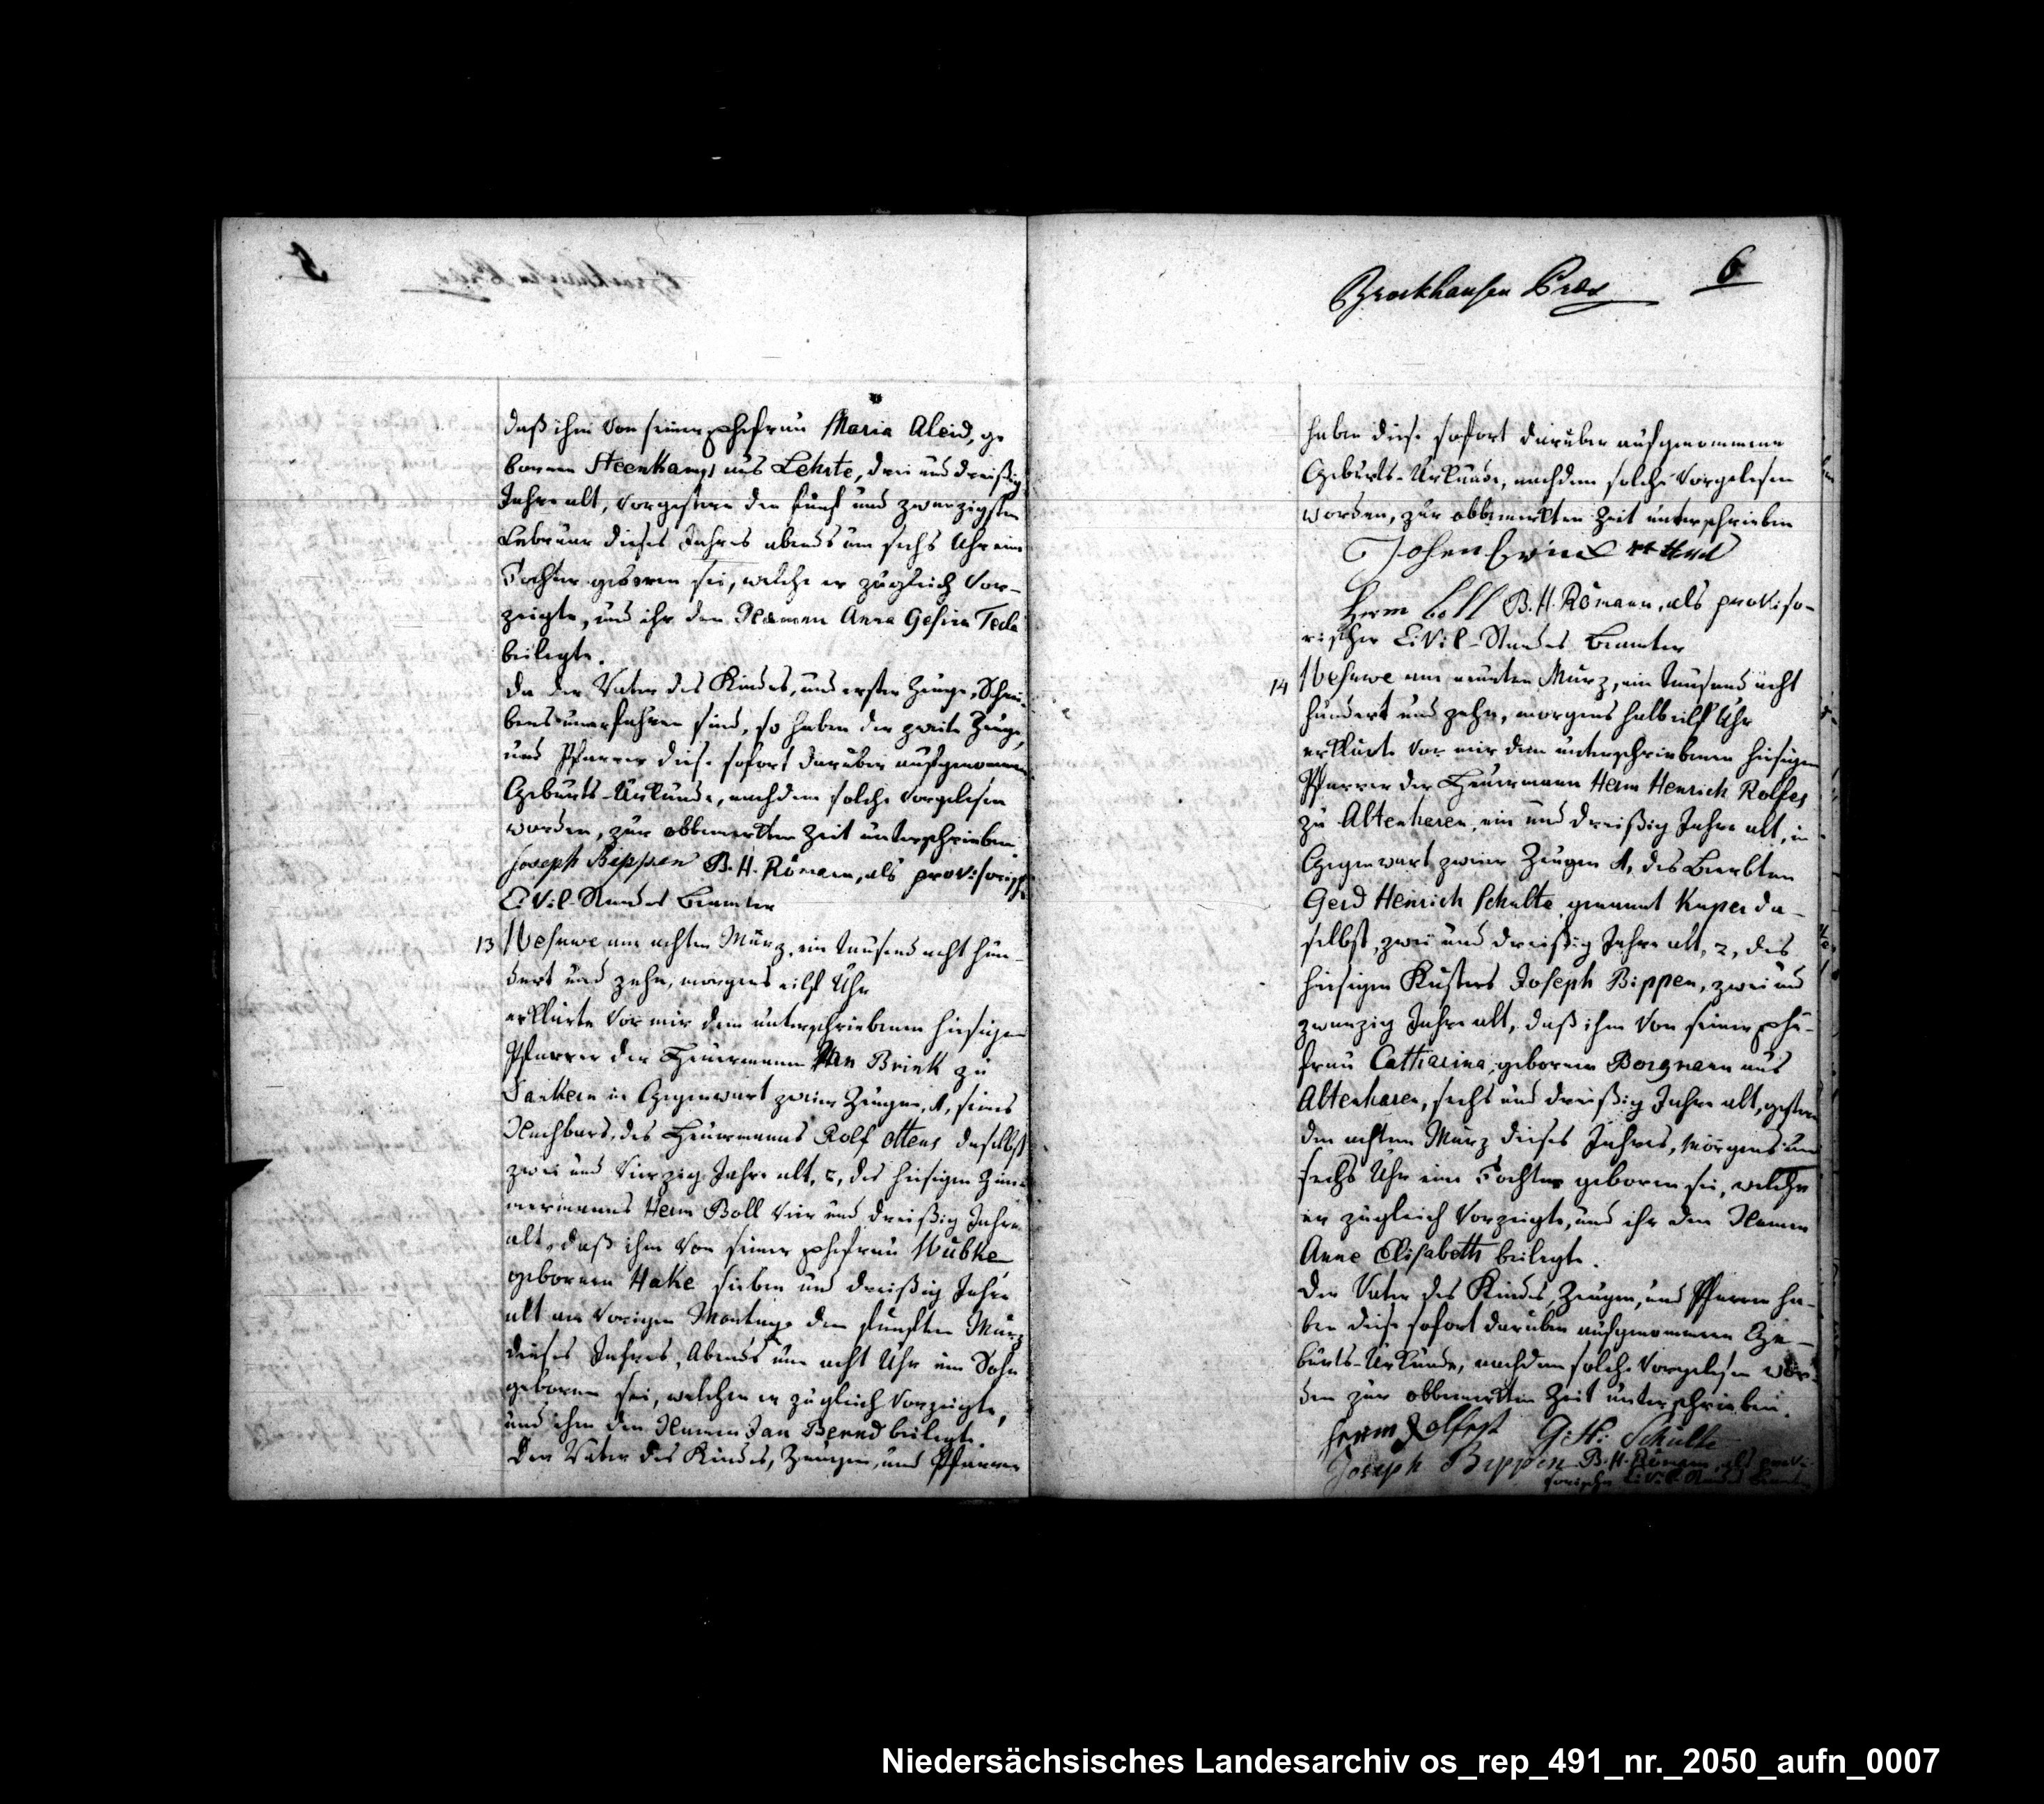 daß ihm von seiner Ehefrau Maria Aleid, ge
bornen Steenkamp aus Lehrte, drei und dreißig
Jahre alt, vorgestern den fünf und zwanzigsten
Februar dieses Jahres abends um sechs Uhr eine
Tochter geboren sei, welche er zugleich vor-
zeigte, und ihr den Namen Anna Gesina Tecla
beilegte.
Da der Vater des Kindes, und erster Zeuge, Schrei-
bens unerfahren sind, so haben der zweite Zeuge,
und Pfarrer diese sofort darüber aufgenommene
Geburts-Urkunde, nachdem solche vorgelesen
worden, zur obbemerkten Zeit unterschrieben.
Joseph Bippen B. H. Römann, als provisorischer
Civil-Standes Beamter
13 Wesuwe am achten März, ein tausend acht hun-
dert und zehn, morgens eilf Uhr
erklärte vor mir dem unterschriebenen hiesigen
Pfarrer der Heuermann Jan Brink zu
Dankern in Gegenwart zweier Zeugen, 1, seines
Nachbars, des Heuermanns Rolf Ottens daselbst
zwei und vierzig Jahre alt, 2, des hiesigen Zim-
mermanns Herm Boll vier und dreißig Jahre
alt, daß ihm von seiner Ehefrau Wubke,
gebornen Hake sieben und dreißig Jahre
alt am vorigen Montage den fünften März
dieses Jahres, Abends um acht Uhr ein Sohn
geboren sei, welchen er zugleich vorzeigte,
und ihm den Namen Jan Bernd beilegte.
Der Vater des Kindes, Zeugen, und Pfarrer
Brockhausen Präs 6
haben diese sofort darüber aufgenommene
Geburts-Urkunde, nachdem solche vorgelesen
worden, zur obbemerkten Zeit unterschrieben
Herm boll B. H. Römann, als proviso-
rischer Civil-Standes Beamter
14 Wesuwe am neunten März, ein tausend acht
hundert und zehn, morgens halb eilf Uhr
erklärte vor mir dem unterschriebenen hiesigen
Pfarrer der Heuermann Herm Henrich Rolfes
zu Altenharen, ein und dreißig Jahre alt, in
Gegenwart zweier Zeugen 1, des Beerbten
Gerd Henrich Schulte, genannt Kuper da-
selbst, zwei und dreißig Jahre alt, 2, des
hiesigen Küsters Joseph Bippen, zwei und
zwanzig Jahre alt, daß ihm von seiner Ehe-
frau Catharina, gebornen Borgmann aus
Altenharen, sechs und dreißig Jahre alt, gestern
den achten März dieses Jahres, morgens um
sechs Uhr eine Tochter geboren sei, welche
er zugleich vorzeigte, und ihr den Namen
Anne Elisabeth beilegte.
Der Vater des Kindes, Zeugen, und Pfarrer ha-
ben diese sofort darüber aufgenommene Ge-
burts-Urkunde, nachdem solche vorgelesen wor-
den zur obbemerkten Zeit unterschrieben.
Herm Rolfes G: H: Schulte
Joseph Bippen B. H. Römann, als provi-
sorischer Civil-Standes Beamter
Niedersächsisches Landesarchiv os_rep_491_nr._2050_aufn_0007